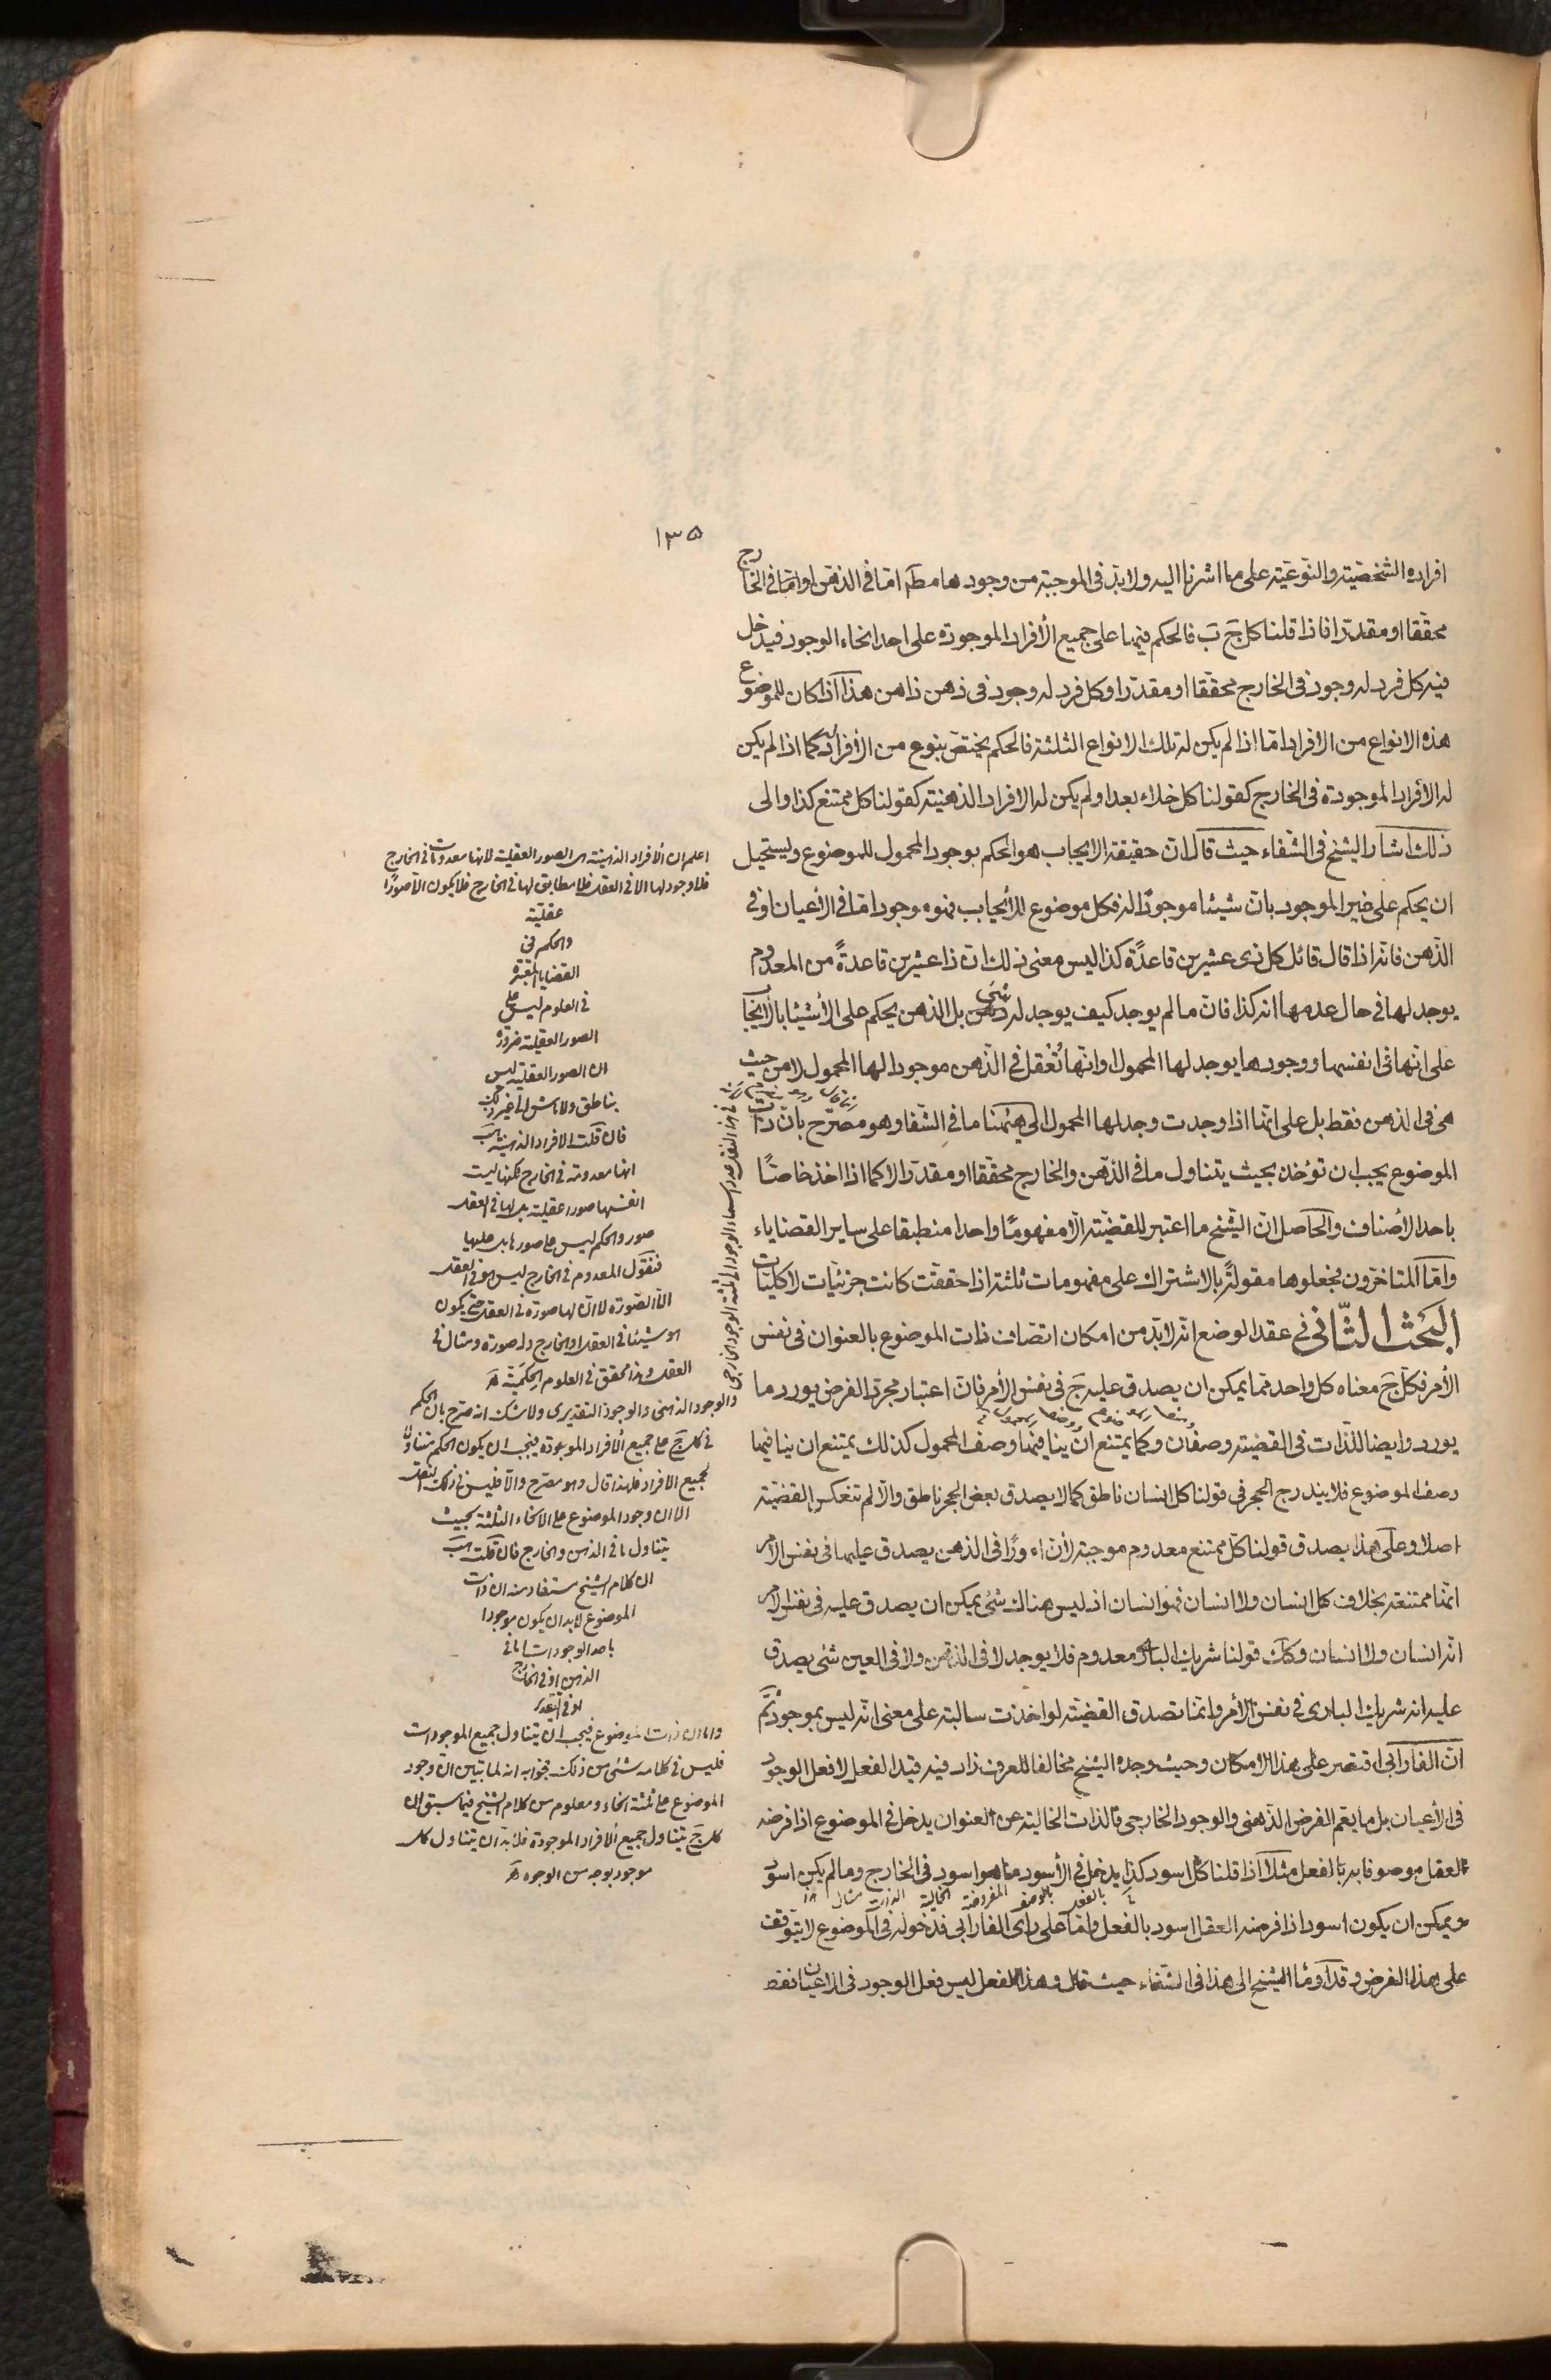 ١٣٥
افراده الشخصيّة والنّوعيّة على ما اشرنا اليه ولا بدّ فى الموجبة من وجودها مطلقا امّا فى الذهن او امّا فى الخارج
محقّقا او مقدّرا فاذا قلنا كل جَ بَ فالحكم فيها على جميع الأفراد الموجودة على احد انحاء الوجود فيدخل
فيه كل فرد له وجود فى الخارج محقّقا او مقدّرا وكل فرد له وجود فى ذهن ذاهن هذا اذا كان للموضوع
هذه الانواع من الافراد امّا اذا لم يكن له تلك الانواع الثلثة فالحكم يختصّ بنوع من الأفراد كما اذا لم يكن
له الأفراد الموجودة فى الخارج كقولنا كل خلاء بعد او لم يكن له الا فراد الذهنيّة كقولنا كل ممتنع كذا والى
ذلك اشار الشيخ فى الشّفاء حيث قال انّ حقيقة الايجاب هو الحكم بوجود المحمول للموضوع ويستحيل
ان يحكم على غير الموجود بانّ شيئا موجودٌ له فكل موضوع للأيجاب فهو موجود امّا فى الأعيان او فى
الذّهن فانّه اذا قال قائل كل ذى عشرين قاعدًة كذا ليس معنى ذلك انّ ذا عشرين قاعدةً من المعدوم
يوجد لها فى حال عدمها انه كذا فانّ ما لم يوجد كيف يوجد له شئ بل الذهن يحكم على الأشيئا بالأيجا
على انّها فى انفسها ووجودها يوجد لها المحمول او انّها تُعْقل فى الذّهن موجودا لها المحمول لا من حيث
هى فى الذهن فقط بل على انّها اذا وجدت وجد لها المحمول الى هيهنا ما فى الشّفا وهو مصرّح بانّ ذات
الموضوع يجب ان تؤخذ بحيث يتناول ما فى الذّهن والخارج محقّقا او مقدّرا لا كما اذا اخذ خاصّا
باحد الأصناف والحاصل انّ الشّيخ ما اعتبر للقضيّة الّا مفهومًا واحدا منطبقا على ساير القضاياء
وامّا المتاخّرون فجعلوها مقولةً بالاشتراك على مفهومات ثلثة اذا حققت كانت جزئيّات لا كليّات
البحث الثّانى فى عقد الوضع انّه لا بدّ من امكان اتصاف ذات الموضوع بالعنوان فى نفس
الأمر فكلّ جَ معناه كل واحد ممّا يمكن ان يصدق عليه جَ فى نفس الأمر فانّ اعتبار مجرّد الفرض يورد ما
يورد وايضا للذّات فى القضيّة وصفان وكما يمتنع ان ينافيها وصف المحمول كذلك يمتنع ان ينافيها
وصف الموضوع فلا يندرج الحجر فى قولنا كل انسان ناطق كما لا يصدق بعض الحجر ناطق والّا لم تنعكس القضيّة
اصلا وعلى هذا يصدق قولنا كلّ ممتنع معدوم موجبة لأنّ افرادًا فى الذهن يصدق عليها فى نفس الأمر
انّها ممتنعة بخلاف كل انسان ولا انسان فهو انسان اذ ليس هناك شئ يمكن ان يصدق عليه فى نفس الأمر
انّه انسان ولا انسان وكذلك قولنا شريك البارى معدوم فلا يوجد لا فى الذّهن ولا فى العين شئ يصدق
عليه انه شريك البارى فى نفس الأمر وانّما تصدق القضيّة لو اخذت سالبة على معنى انّه ليس بموجود ثمّ
انّ الفارابى اقتصر على هذا الامكان وحيث وجده الشيخ مخالفا للعرف زاد فيه قيد الفعل لا فعل الوجود
فى الأعيان بل ما يعمّ الفرض الذّهنى والوجود الخارجى فالذات الخالية عن العنوان يدخل فى الموضوع اذا فرضه
العقل موصوفا به بالفعل مثلاً اذا قلنا كل اسود كذا يدخل فى الأسود ما هو اسود فى الخارج وما لم يكن اسود
ويمكن ان يكون اسود اذا فرضه العقل اسود بالفعل وامّا على رأى الفارابى فدخوله فى الموضوع لا يتوقف
على هذا الفرض وقد اومأ الشيخ الى هذا فى الشّفاء حيث قال وهذا الفعل ليس فعل الوجود فى الأعيان فقط
اعلم ان الأفراد الذهنية هى الصور العقلية لانها معدومات فى الخارج
فلا وجود لها الا فى العقل فلا مطابق لها فى الخارج فلا يكون الا صورًا
عقليّة
والحكم فى
القضايا المعتبرة
فى العلوم ليس على
الصور العقلية ضرورة
ان الصور العقلية ليس
بناطق ولا ماش الى غير ذلك
فان قلت الافراد الذهنية هب
انها معدومة فى الخارج لكنها ليست
انفسها صورا عقلية بل لها فى العقل
صور والحكم ليس على صورها بل عليها
فنقول المعدوم فى الخارج ليس هو فى العقل
الّا الصّورة لا ان لها صورة فى العقل حتى يكون
هو شيئا فى العقل او الخارج وله صورة ومثال فى
العقل وهذا محقق فى العلوم الحكميّة
والوجود الذهنى والوجود التقديرى ولا شك انه صرّح بان الحكم
فى كل جَ على جميع الأفراد الموجودة فيجب ان يكون الحكم متناولا
لجميع الافراد فلهذا قال وهو مصرّح والّا فليس فى ذلك النقل
الا ان وجود الموضوع على الانحاء الثلثة بحيث
يتناول ما فى الذهن والخارج فان قلت هب
ان كلام الشيخ مستفاد منه ان ذات
الموضوع لابد ان يكون موجودا
باحد الوجودات اما فى
الذهن او فى الخارج
او فى التقدير
واما ان ذات الموضوع فيجب ان يتناول جميع الموجودات
فليس فى كلامه شئ من ذلك فجوابه انه لما تبيّن انّ وجود
الموضوع على ثلثة انحاء ومعلوم من كلام الشيخ فيما سبق ان
كل جَ يتناول جميع الأفراد الموجودة فلابد ان يتناول كل
موجود بوجه من الوجوه